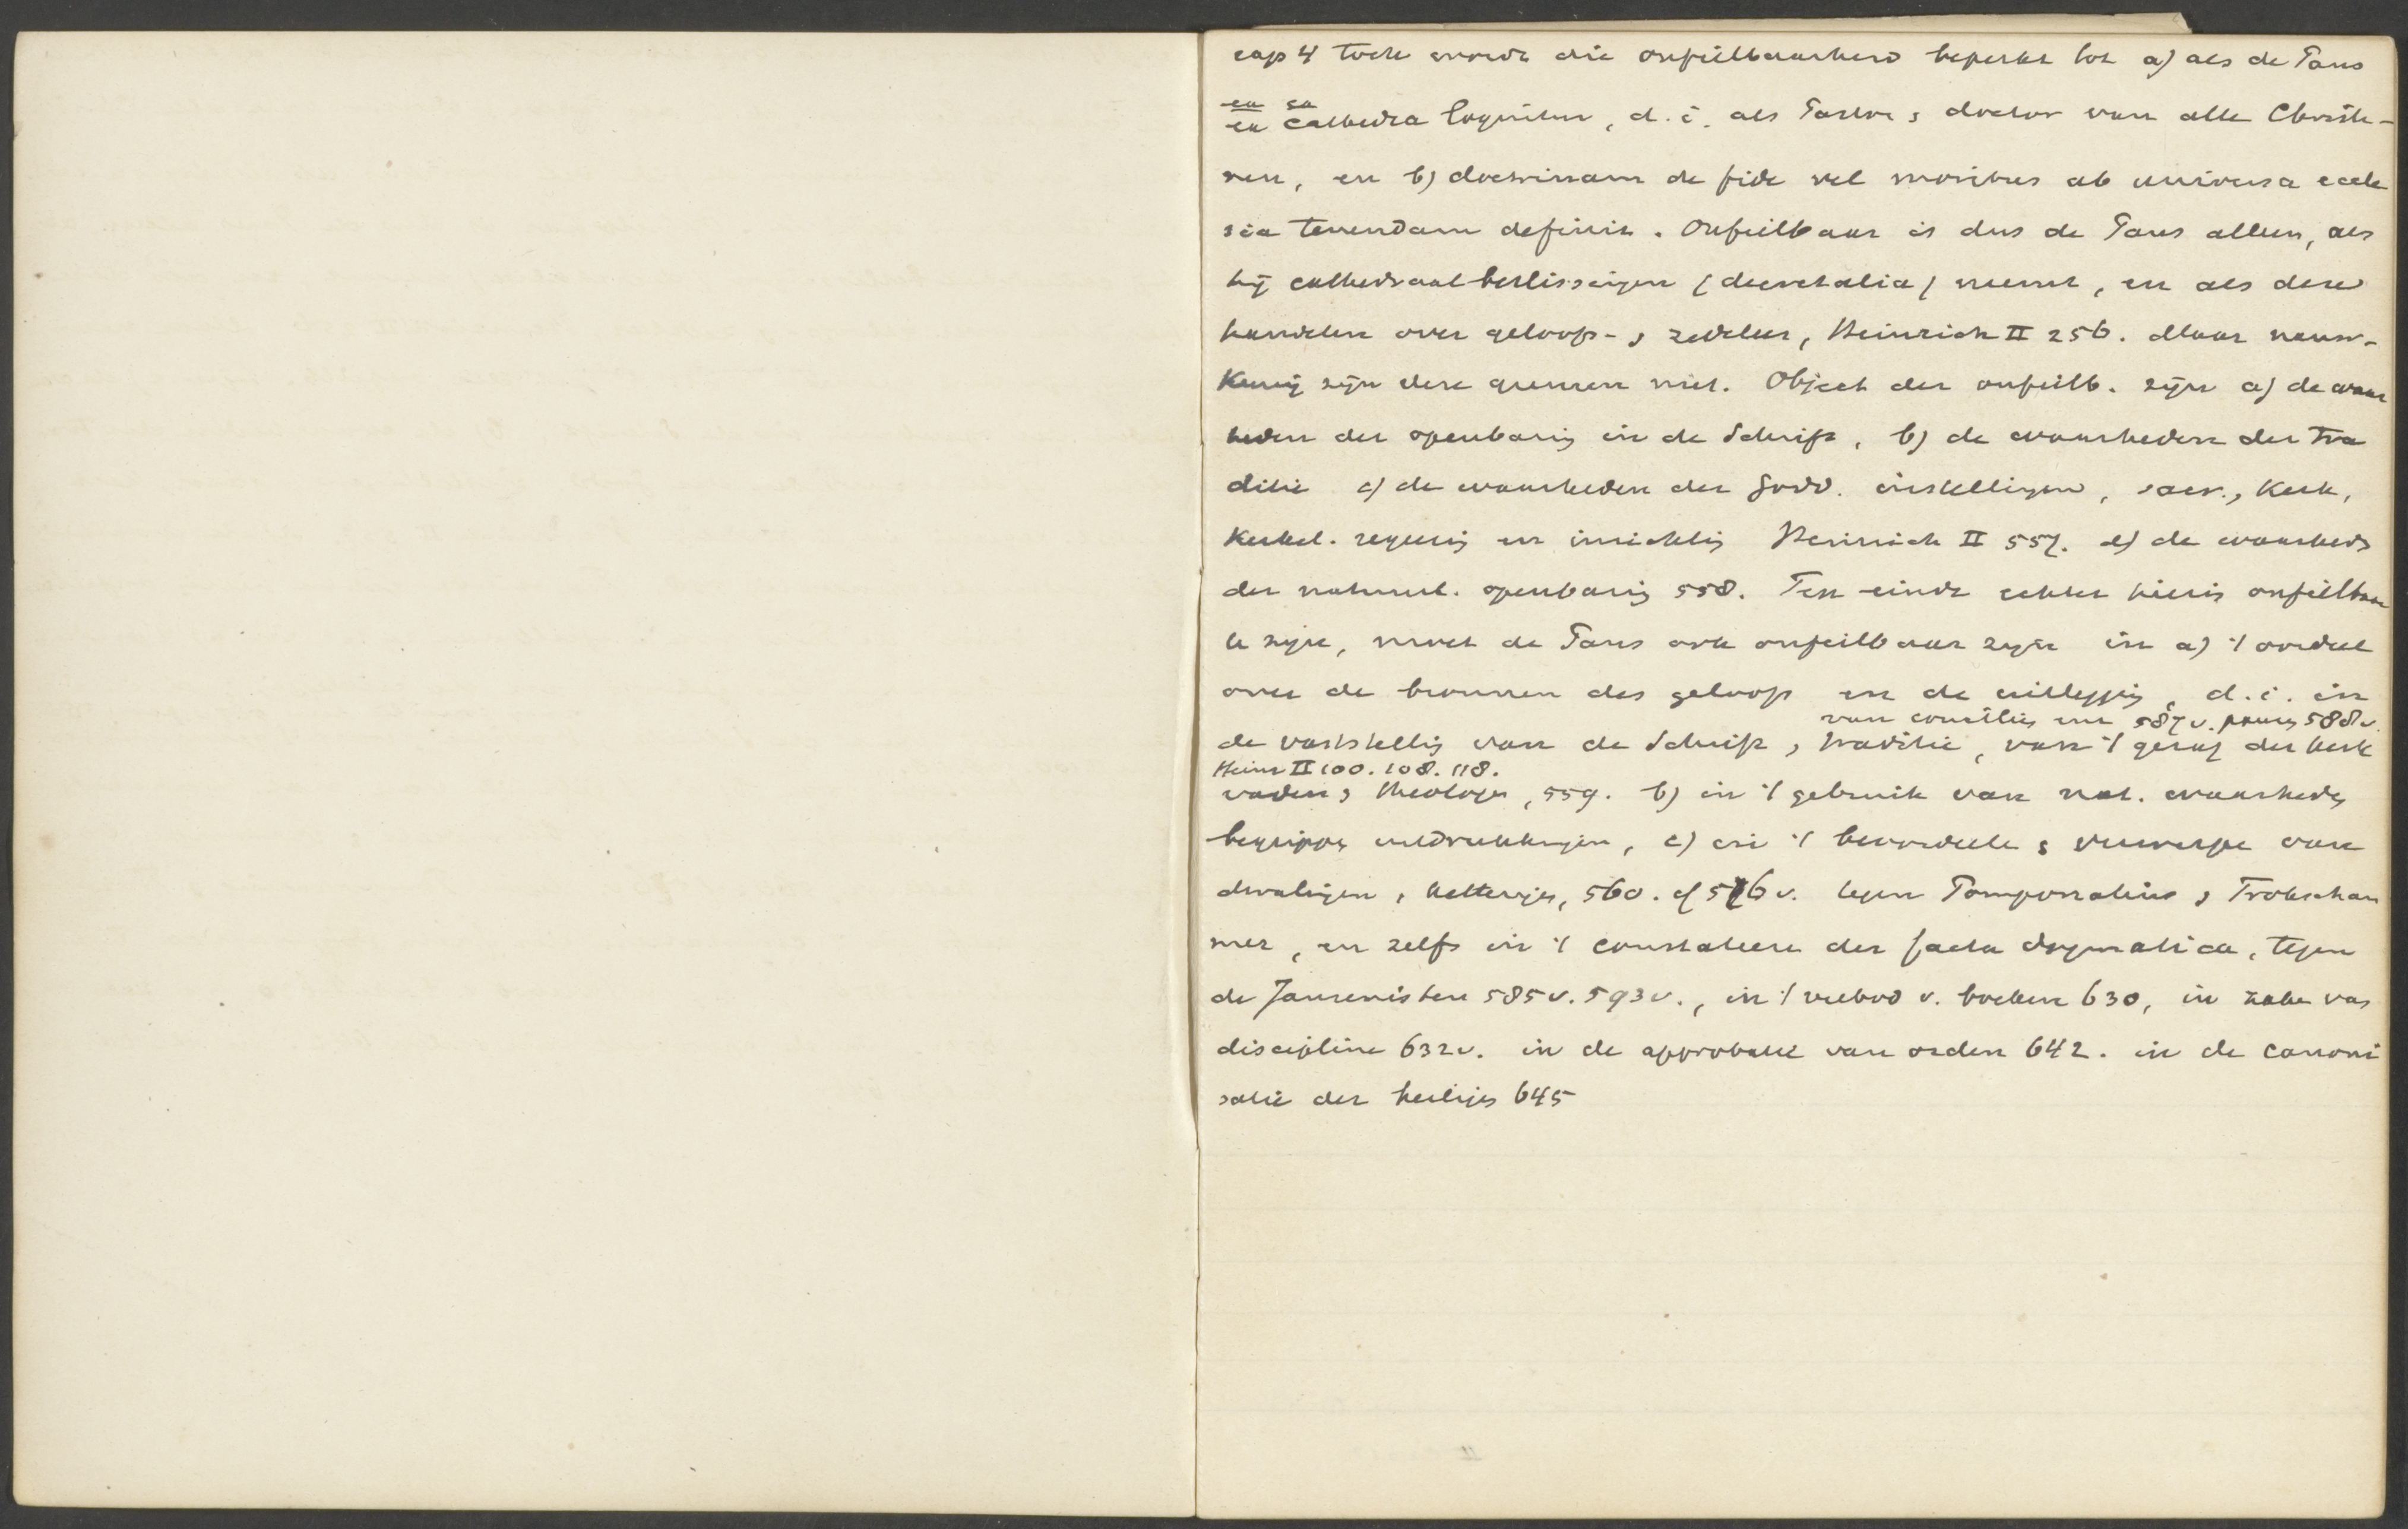 cap 4 toch wordt die onfeilbaarheid beperkt tot a) als de Paus
ex cathedra loquitur, d.i. als Pastor & doctor van alle Christe-
nen, en b) doctrinam de fide vel moribus ab universa eccle
sia tenendam definit. Onfeilbaar is dus de Paus alleen, als
hij cathedraalbeslissingen (decretalia) neemt, en als deze
handelen over geloofs- & zedeleer, Heinrich II 256. Maar nauw-
keurig zijn deze grenzen niet. Object der onfeilb. zijn a) de waar
heden der openbaring in de Schrift, b) de waarheden der tra
ditie c) de waarheden der Godd. instellingen, sacr., Kerk,
Kerkel. regering en inrichting Heinrich II 557. d) de waarheden
der natuurl. openbaring 558. Ten einde echter hierin onfeilbaar
te zijn, moet de Paus ook onfeilbaar zijn in a) 't oordeel
over de bronnen des geloofs en de uitlegging, d.i. in
van conciliën 587 v. pausen 588 v.
de vaststelling van de Schrift, traditie, van 't gezag der kerk
Heinr II 100. 108. 118.
vaders & theologen, 559. b) in 't gebruik van nat. waarheden
begrippen uitdrukkingen, c) in 't beoordeelen & verwerpen van
dwalingen, ketterijen, 560. cf 576 v. tegen Pomponatius & Frohscham
mer, en zelfs in 't constateren der facta dogmatica, tegen
de Jansenisten 585 v. 593 v., in 't verbod v. boeken 630, in zake van
discipline 632 v. in de approbatie van orden 642. in de canoni
satie der heiligen 645